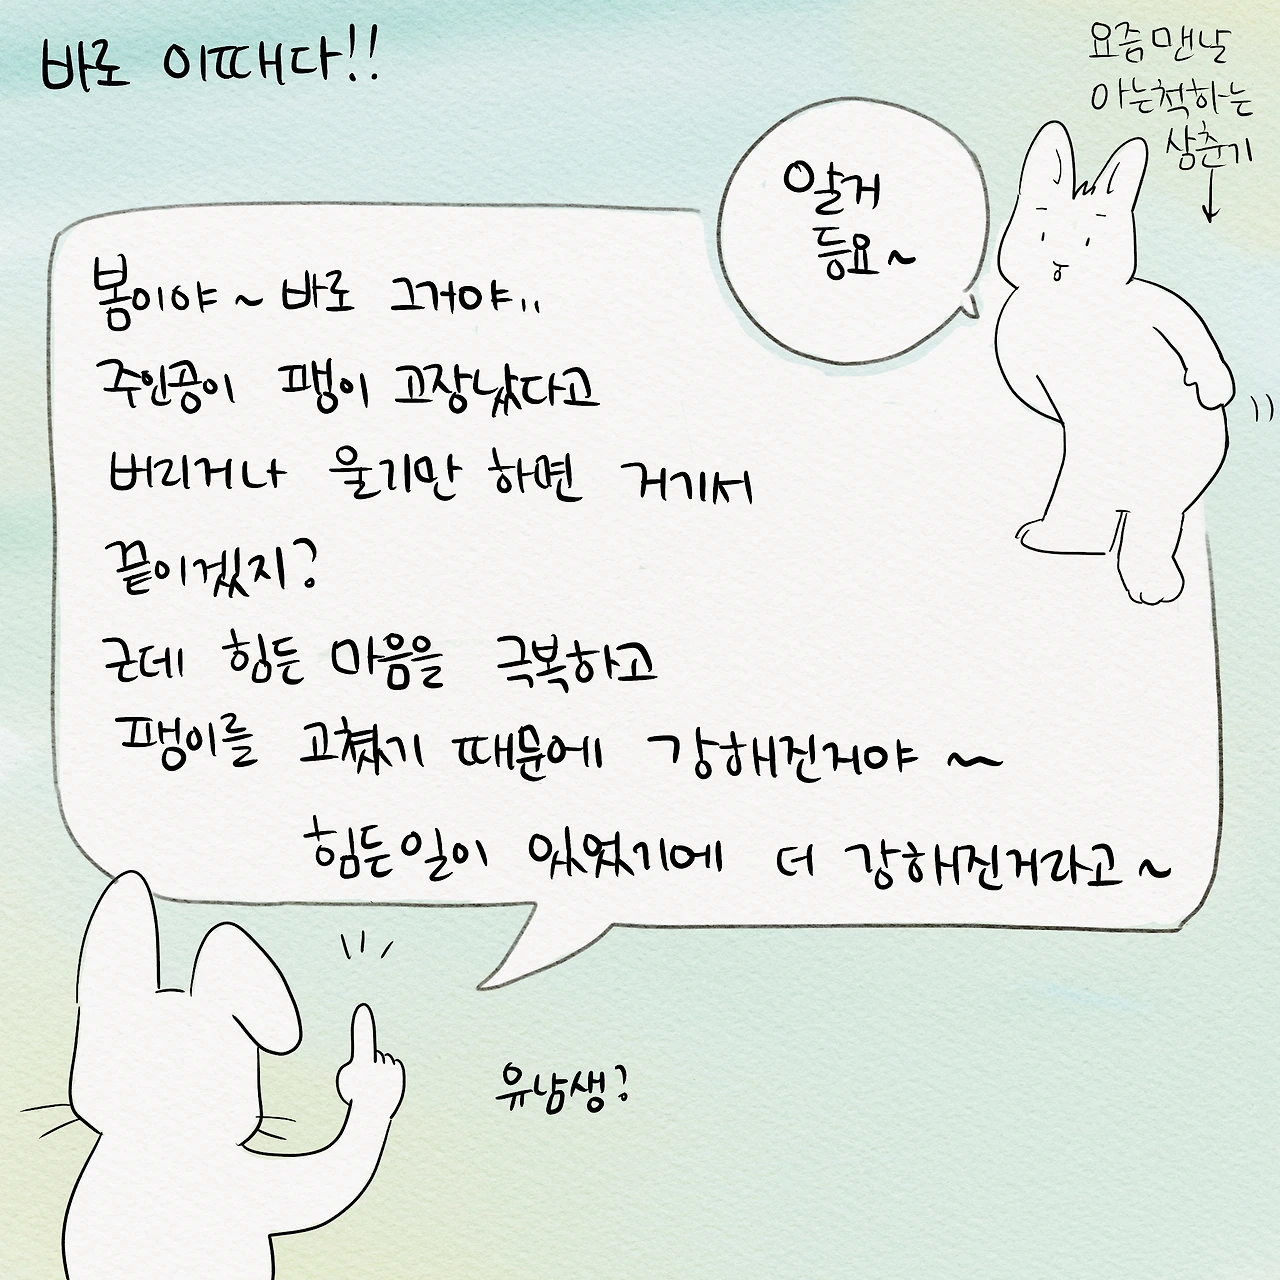 바로 이때다!!
요즘맨날
아는척하는
삼춘기
알거
등요~
봄이야~ 바로 그거야..
주인공이 팽이 고장났다고
버리거나 울기만 하면 거기서
끝이겠지?
근데 힘든 마음을 극복하고
팽이를 고쳤기 때문에 강해진거야~
힘든일이 있었기에 더 강해진거라고~
유남생?